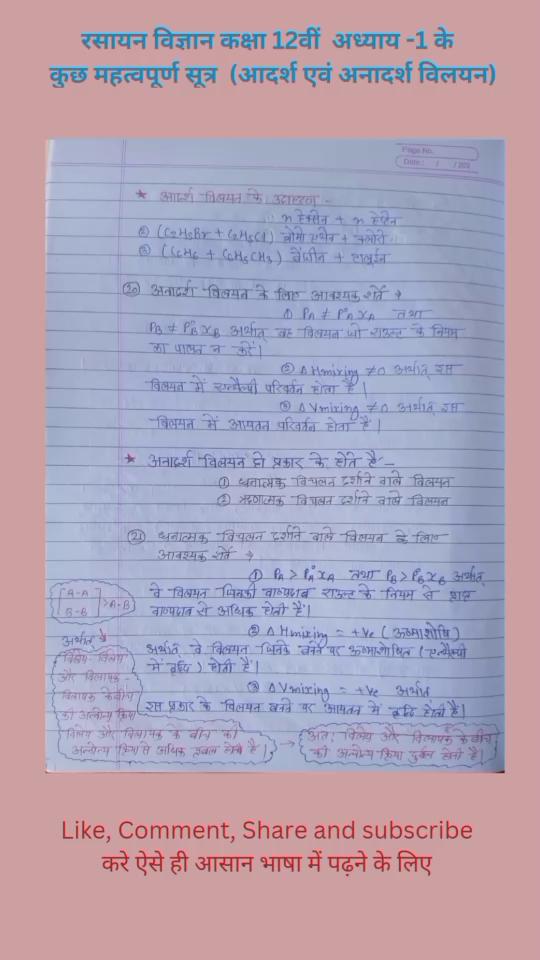 रसायन विज्ञान कक्षा 12वीं अध्याय -1 के
कुछ महत्वपूर्ण सूत्र (आदर्श एवं अनादर्श विलयन)
Page No.
Date : / / 202
* आदर्श विलयन के उदाहरण -
n हेक्सेन + n हेप्टेन
② (C₂H₅Br + C₂H₅Cl) ब्रोमो एथेन + क्लोरो
③ (C₆H₆ + C₆H₅CH₃) बेंजीन + टालुईन
⑳ अनादर्श विलयन के लिए आवश्यक शर्ते →
① PA ≠ P°A xA तथा
PB ≠ P°B xB अर्थात् वह विलयन जो राउल्ट के नियम
का पालन न करें।
② ΔHmixing ≠ 0 अर्थात् इस
विलयन में एन्थैल्पी परिवर्तन होता है।
③ ΔVmixing ≠ 0 अर्थात् इस
विलयन में आयतन परिवर्तन होता है।
* अनादर्श विलयन दो प्रकार के होते हैं -
① धनात्मक विचलन दर्शाने वाले विलयन
② ऋणात्मक विचलन दर्शाने वाले विलयन
㉑ धनात्मक विचलन दर्शाने वाले विलयन के लिए
आवश्यक शर्ते →
① PA > P°A xA तथा PB > P°B xB अर्थात्
वे विलयन जिनकी वाष्पदाब राउल्ट के नियम से प्राप्त
वाष्पदाब से अधिक होती है।
② ΔHmixing = +ve (ऊष्माशोषि)
अर्थात् वे विलयन जिनके बनने पर ऊष्माशोषित (एन्थैल्पी
में वृद्धि) होती है।
③ ΔVmixing = +ve अर्थात
इस प्रकार के विलयन बनने पर आयतन में वृद्धि होती है।
[A-A
B-B] > A-B
अर्थात्
विलेय-विलेय
और विलायक-
विलायक के बीच
की अन्योन्य क्रिया
विलेय और विलायक के बीच की
अन्योन्य क्रिया से अधिक प्रबल होती है।
→ अतः विलेय और विलायक के बीच
की अन्योन्य क्रिया दुर्बल होती है।
Like, Comment, Share and subscribe
करे ऐसे ही आसान भाषा में पढ़ने के लिए